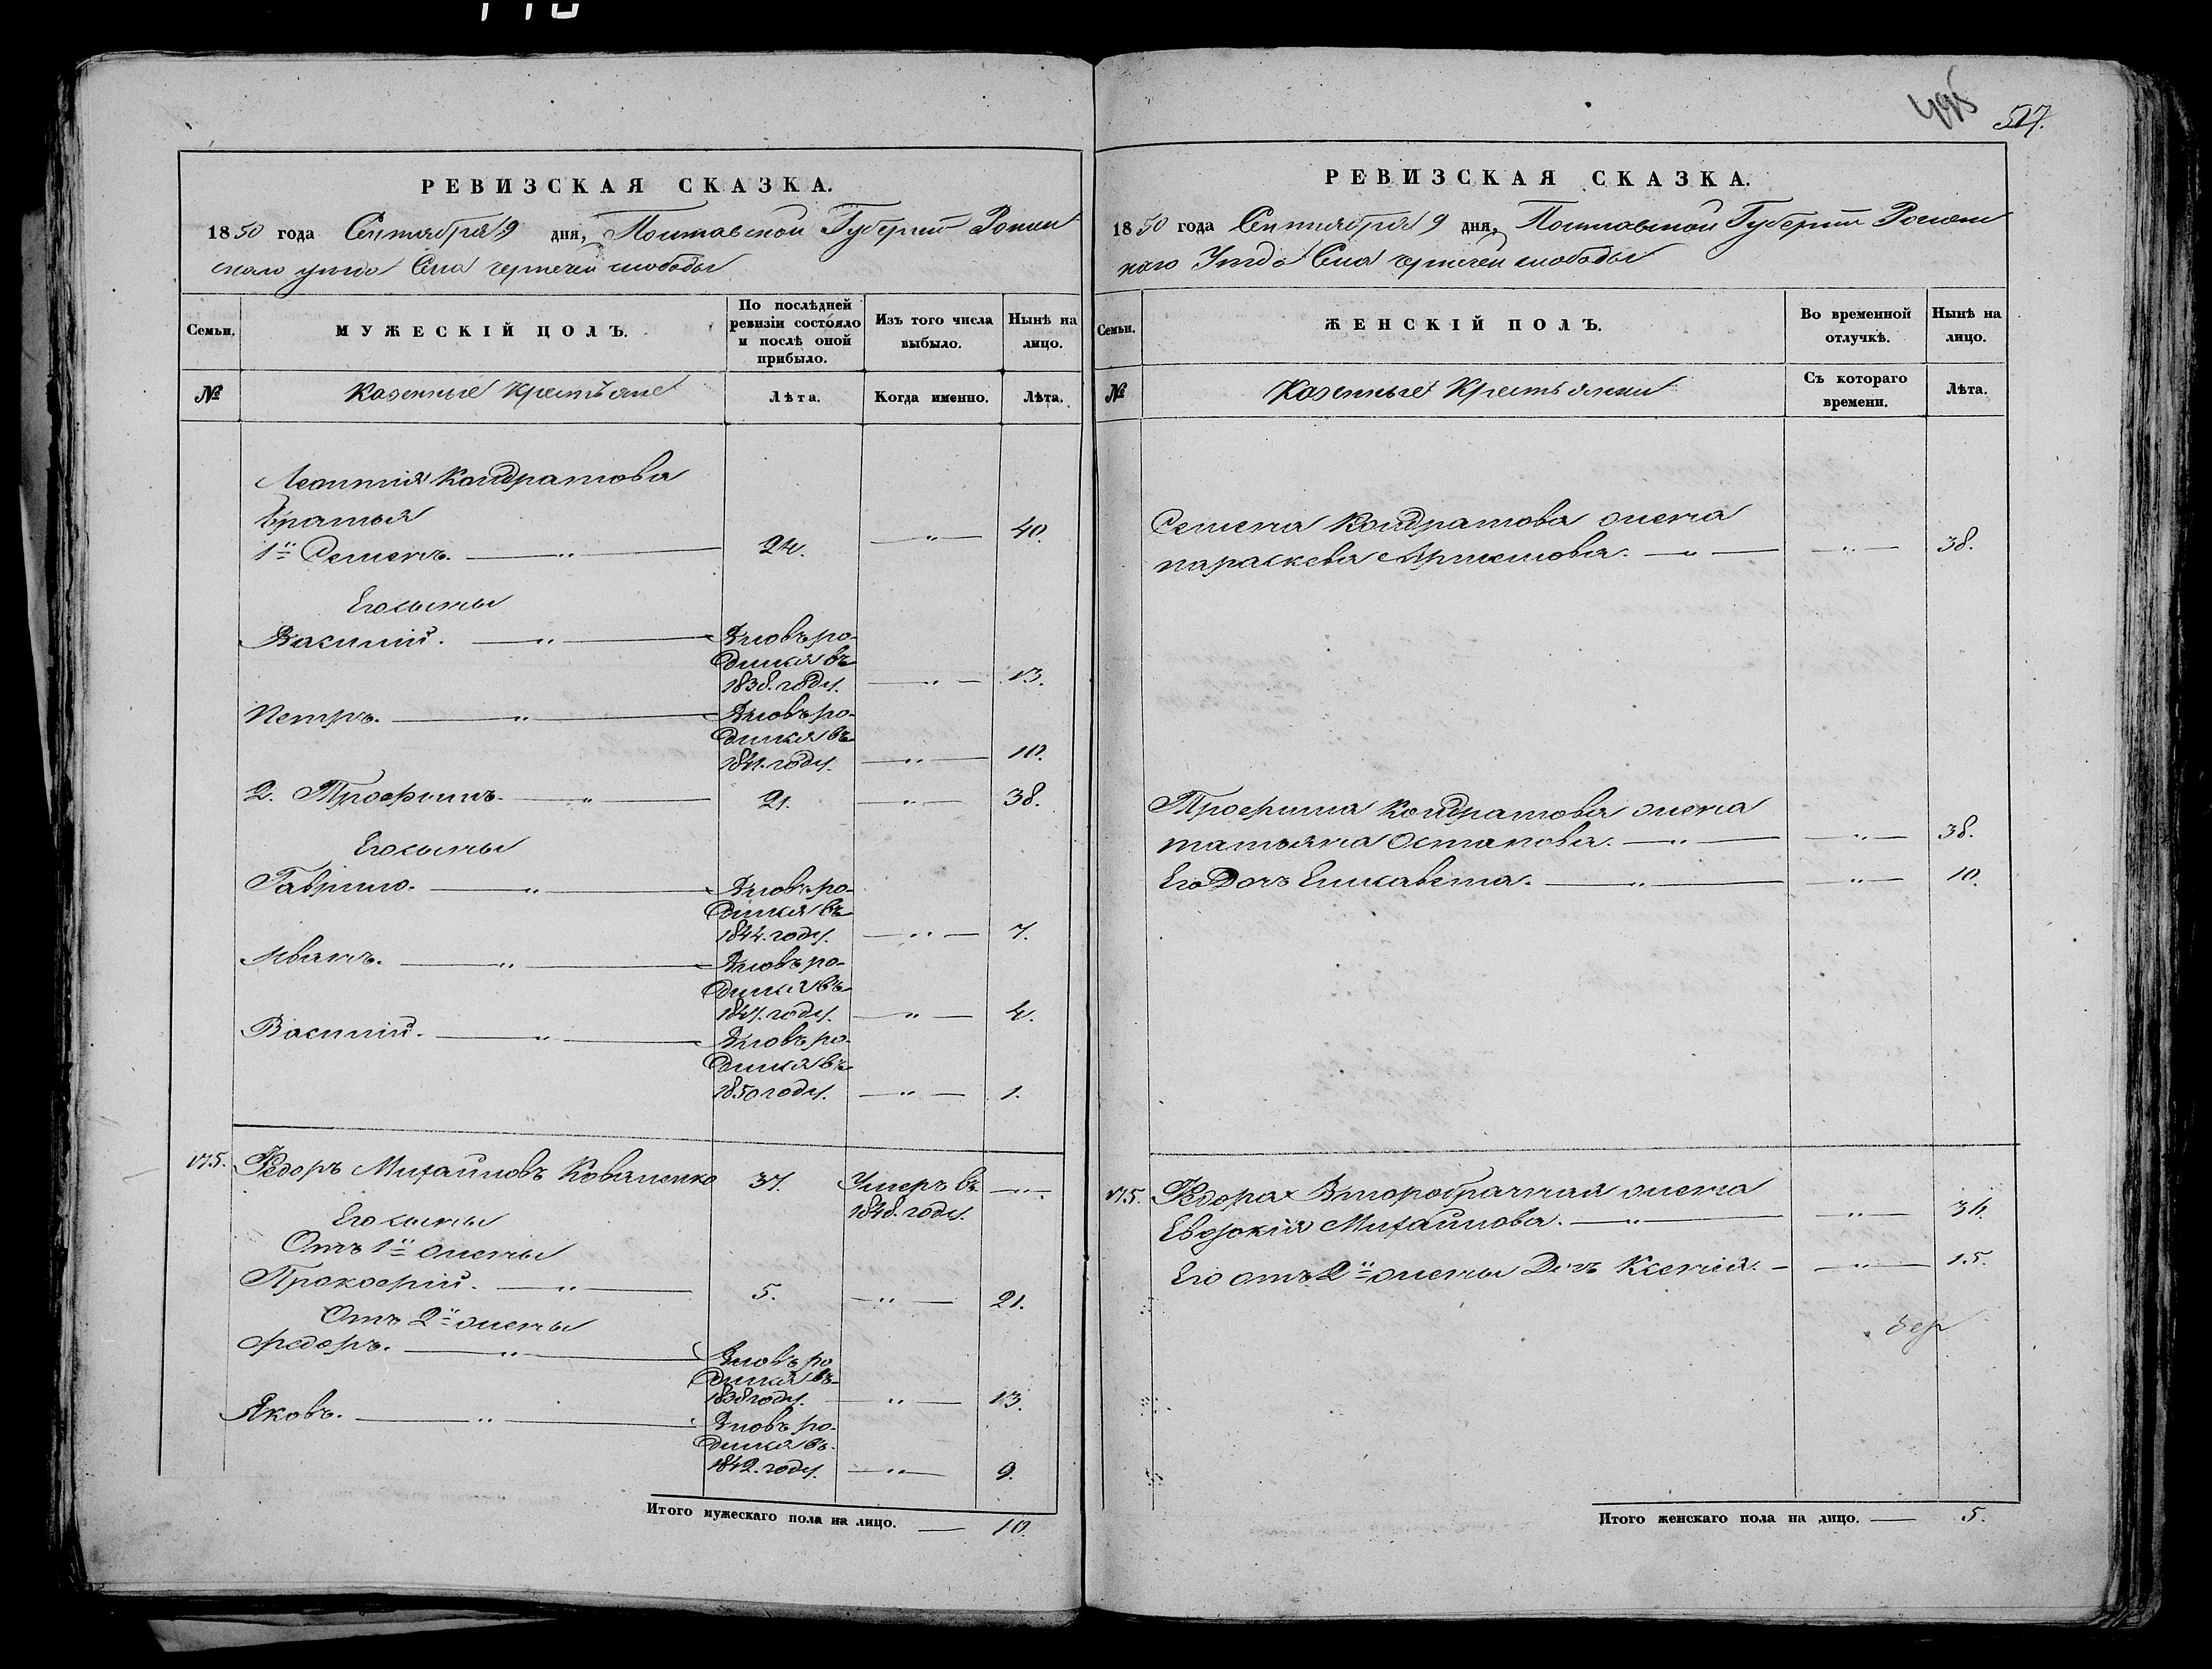 495
517.
РЕВИЗСКАЯ СКАЗКА.
1850 года Сентября 9 дня, Полтавской Губерніи Ромен
скаго уезда Села чернечей слободы
Семьи.
МУЖЕСКІЙ ПОЛЪ.
По послѣдней ревизіи состояло и послѣ оной прибыло.
Изъ того числа выбыло.
Нынѣ на лицо.
№
Казенные Крестьяне
Лѣта.
Когда именно.
Лѣта.
Леонтія Кондратова
братья
1й Семенъ. — „ — 24. — „ — 40.
Его сыны
Василий. — „ — Вновь ро-
дился въ
1838. году. — „ — 13.
Петръ. — „ — Вновь ро-
дился въ
1841. году. — „ — 10.
2. Трофимъ. — „ — 21. — „ — 38.
Его сыны
Гаврило. — „ — Вновь ро-
дился въ
1844. году. — „ — 7.
Иванъ. — „ — Вновь ро-
дился въ
1847. году. — „ — 4.
Василий. — „ — Вновь ро-
дился въ
1850 году. — „ — 1.
175. Федоръ Михайловъ Коваленко 37. Умеръ въ — „ —
1848. году.
Его сыны
Отъ 1й жены
Прокофій. — „ — 5. — „ — 21.
Отъ 2й жены
Федоръ. — „ — Вновь ро
дился въ
1838 году. — „ — 13.
Яковъ. — „ — Вновь ро-
дился въ
1842. году. — „ — 9.
Итого мужескаго пола на лицо. — 10.
РЕВИЗСКАЯ СКАЗКА.
1850 года Сентября 9 дня, Полтавской Губерніи Роменс
каго Уезда Села чернечей слободы
Семьи.
ЖЕНСКІЙ ПОЛЪ.
Во временной отлучкѣ.
Нынѣ на лицо.
№
Казенные Крестьянки
Съ котораго времени.
Лѣта.
Семена Кондратова жена
параскева Артемова. — „ — — „ — 38.
Трофима Кондратова жена
татьяна Остапова. — „ — — „ — 38.
Его Дочь Елисавета. — „ — — „ — 10.
175. Федора Второбрачная жена
Евдокія Михайлова. — „ — — „ — 36.
Его отъ 2й жены Дочь Ксенія. — — „ — 15.
Итого женскаго пола на лицо. — 5.